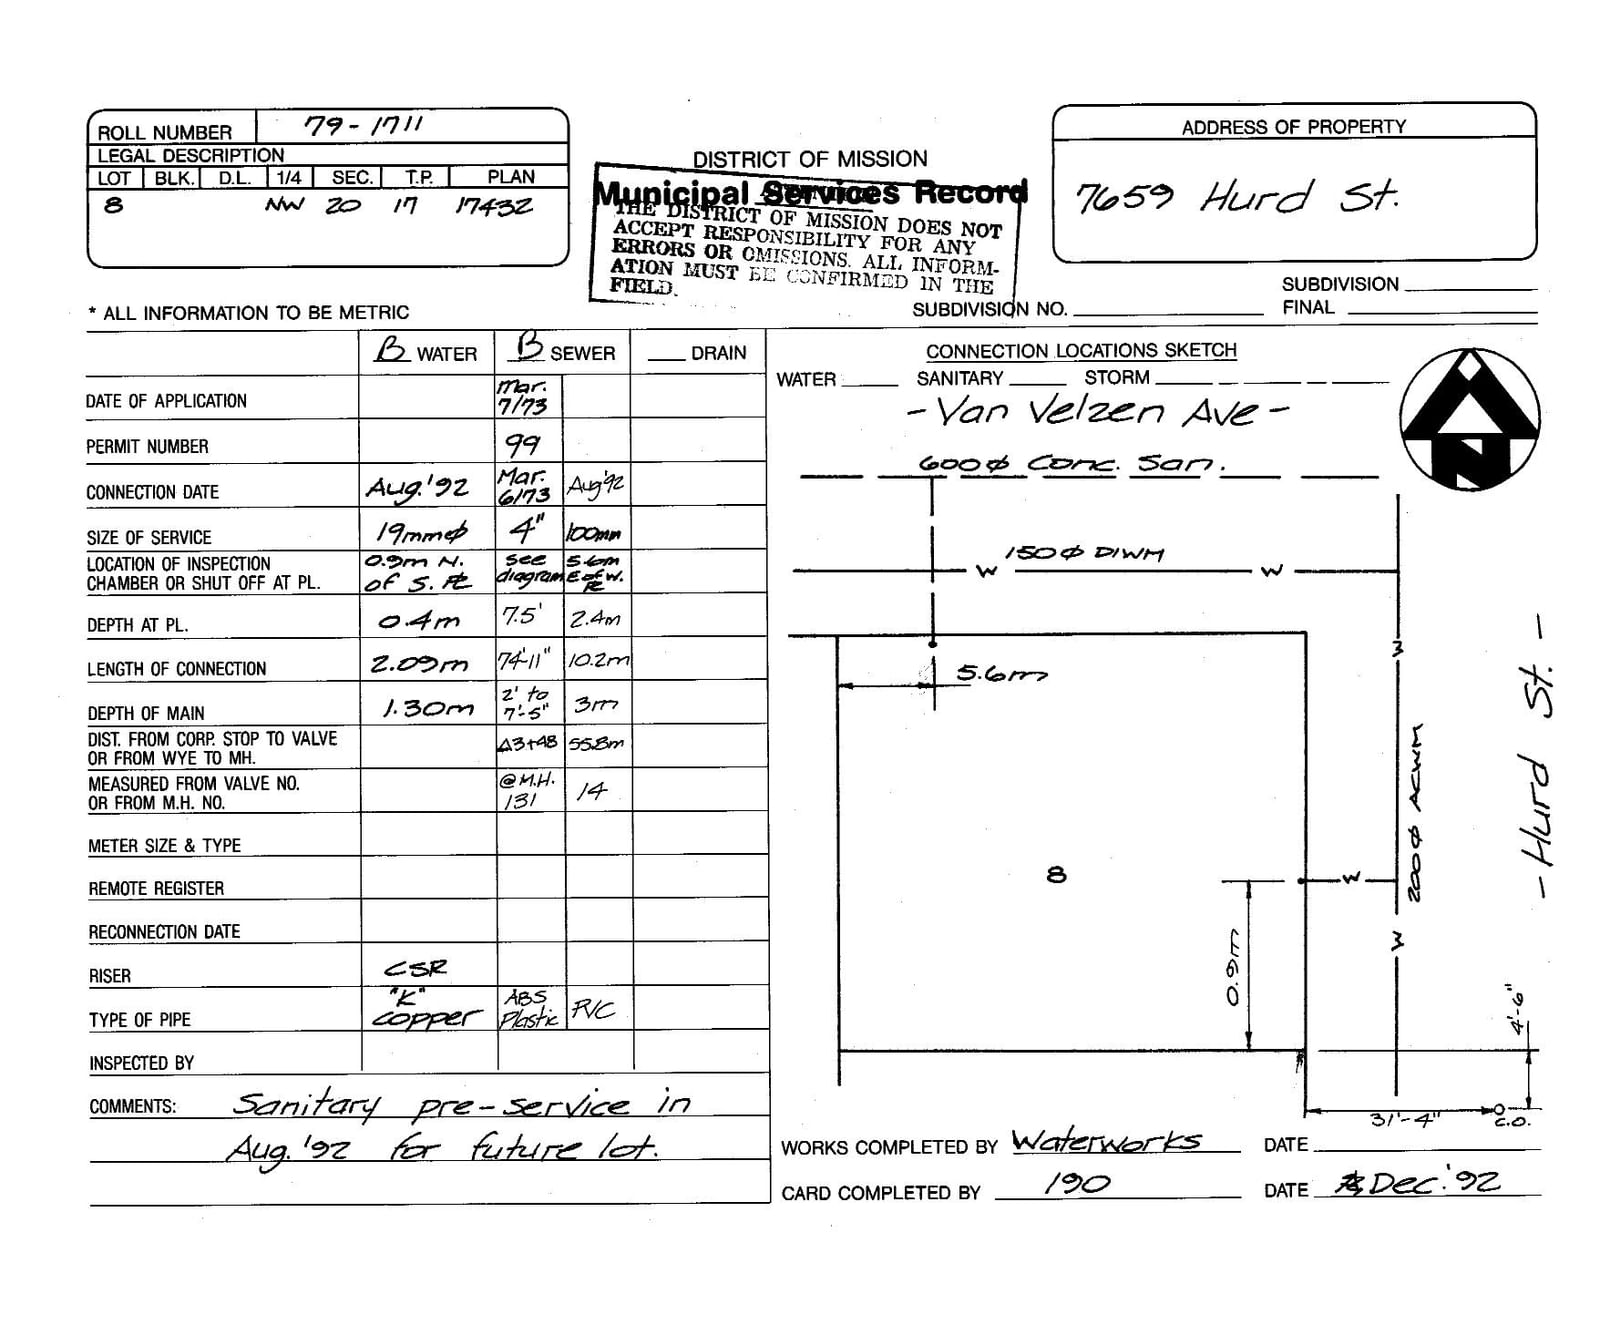 ROLL NUMBER 79-1711
LEGAL DESCRIPTION
LOT BLK. D.L. 1/4 SEC. T.P. PLAN
8 NW 20 17 17432
DISTRICT OF MISSION
Municipal Services Record
THE DISTRICT OF MISSION DOES NOT
ACCEPT RESPONSIBILITY FOR ANY
ERRORS OR OMISSIONS. ALL INFORM-
ATION MUST BE CONFIRMED IN THE
FIELD.
ADDRESS OF PROPERTY
7659 Hurd St.
SUBDIVISION
SUBDIVISION NO. FINAL
* ALL INFORMATION TO BE METRIC
B WATER B SEWER DRAIN
DATE OF APPLICATION Mar. 7/73
PERMIT NUMBER 99
CONNECTION DATE Aug.'92 Mar. 6/73 Aug'92
SIZE OF SERVICE 19mmϕ 4" 100mm
LOCATION OF INSPECTION CHAMBER OR SHUT OFF AT PL. 0.9m N. of S. PL see diagram 5.6m E of W. PL
DEPTH AT PL. 0.4m 7.5' 2.4m
LENGTH OF CONNECTION 2.09m 74'-11" 10.2m
DEPTH OF MAIN 1.30m 2' to 7'-5" 3m
DIST. FROM CORP. STOP TO VALVE OR FROM WYE TO MH. Δ3+48 55.8m
MEASURED FROM VALVE NO. OR FROM M.H. NO. @ M.H. 131 14
METER SIZE & TYPE
REMOTE REGISTER
RECONNECTION DATE
RISER CSR
TYPE OF PIPE "K" copper ABS Plastic PVC
INSPECTED BY
COMMENTS: Sanitary pre-service in
Aug. '92 for future lot.
CONNECTION LOCATIONS SKETCH
WATER SANITARY STORM
- Van Velzen Ave -
N
600ϕ Conc. San.
150ϕ DIWM
W W
W
5.6m
- Hurd St. -
200ϕ ACWM
8
W
W
0.9m
4'-6"
31'-4"
C.O.
WORKS COMPLETED BY Waterworks DATE
CARD COMPLETED BY 190 DATE Dec.'92